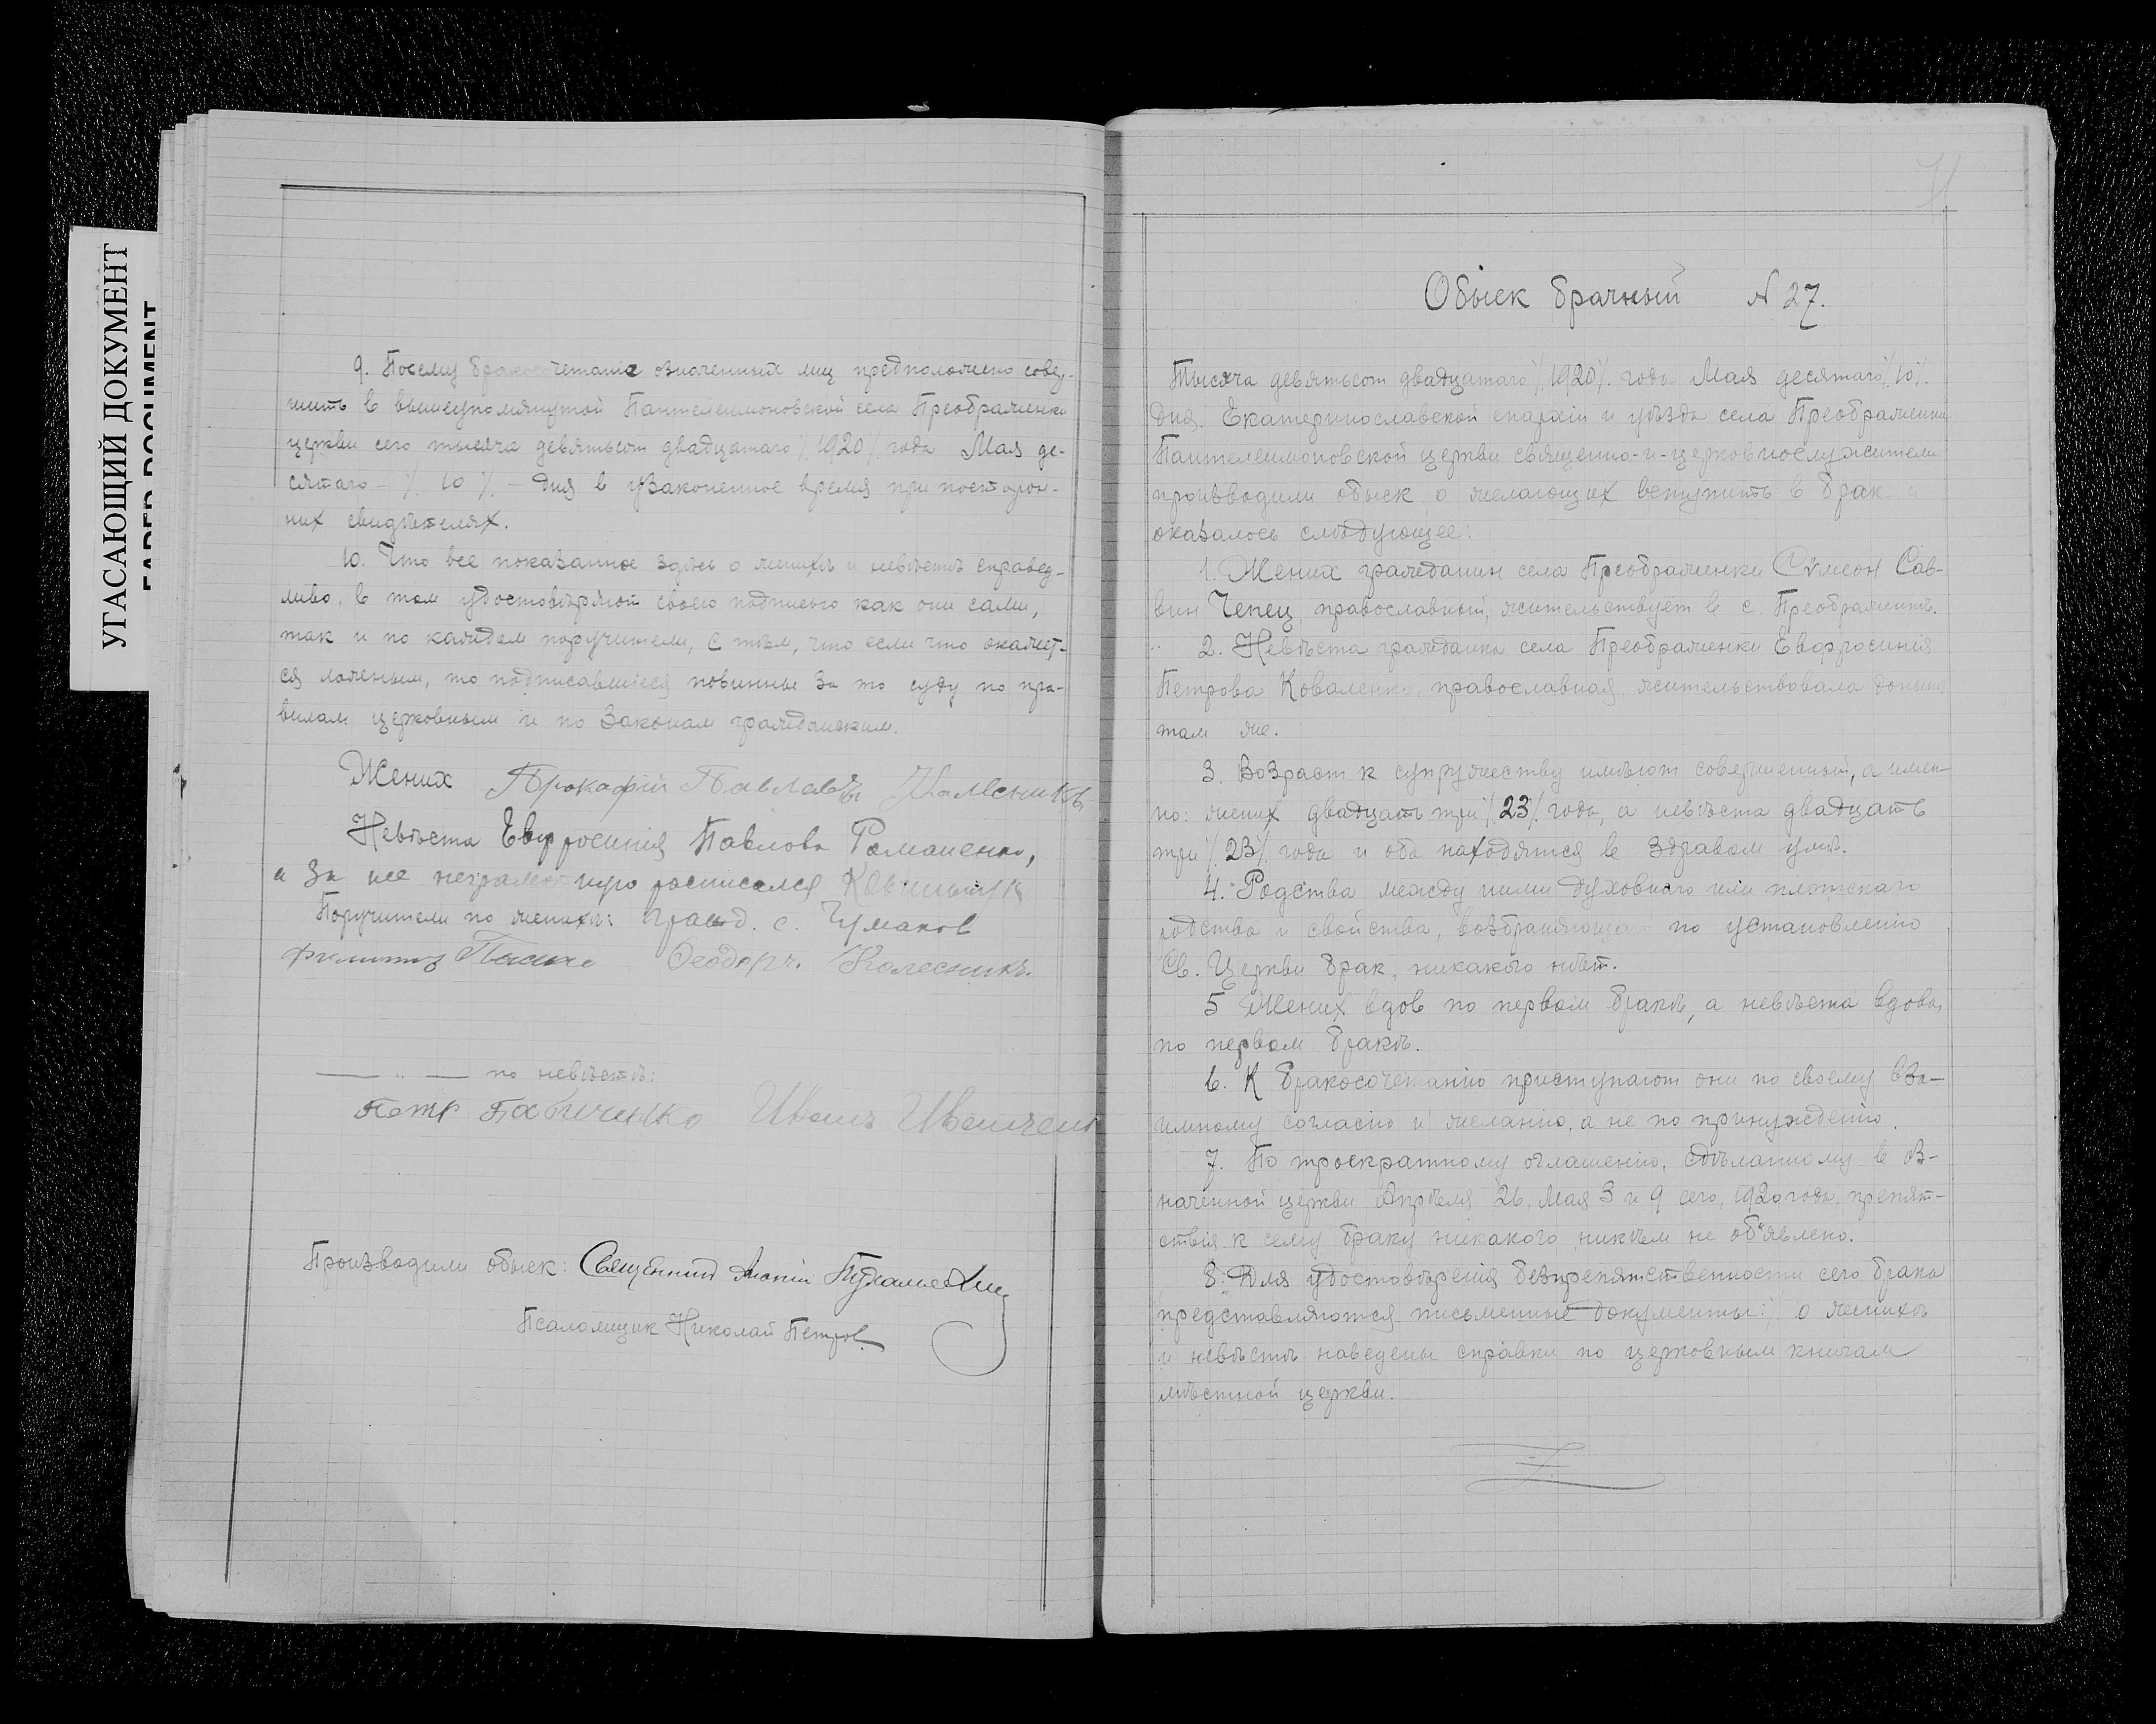 УГАСАЮЩИЙ ДОКУМЕНТ
FADED DOCUMENT
9. Посему бракосочетаніе означенных лиц предположено совер-
шить в вышеупомянутой Пантелеимоновской села Преображенки
церкви сего тысяча девятьсот двадцатаго /. 1920 /. года Мая де-
сятаго - /. 10 /. - дня в узаконенное время при посторон-
них свидѣтелях.
10. Что все показанное здѣсь о женихѣ и невѣстѣ справед-
ливо, в том удостовѣряют своею подписью как они сами,
так и по каждом поручители, с тѣм, что если что окажет-
ся ложным, то подписавшіеся повинны за то суду по пра-
вилам церковным и по законам гражданским.
Жених Прокофій Павлавъ
Невѣста Евфросинія Павлова Романенко,
а за нее неграмотную росписался
Поручители по женихѣ: гражд. с. Чумаков
Филиппъ Феодоръ Колесникъ.
— „ — по невѣстѣ:
Петр Бабиченко Иванъ Иванченко
Производили обыск: Священник
Псаломщик Николай Петров
71
Обыск брачный N 27.
Тысяча девятьсот двадцатаго /. 1920 /. года Мая десятаго /. 10 /.
дня. Екатеринославской епархіи и уѣзда села Преображенки
Пантелеимоновской церкви священно-и-церковнослужители
производили обыск о желающих вступить в брак и
оказалось слѣдующее:
1. Жених гражданин села Преображенки Сѵмеон Сав-
вин Чепец, православный, жительствует в с. Преображенкѣ.
2. Невѣста гражданка села Преображенки Евфросинія
Петрова Коваленко, православная, жительствовала донынѣ
там же.
3. Возраст к супружеству имѣют совершенный, а имен-
но: жених двадцать три /. 23 /. года, а невѣста двадцать
три /. 23 /. года и оба находятся в здравом умѣ.
4. Родства между ними духовнаго или плотскаго
родства и свойства, возбраняющаго по установленію
Св. Церкви брак, никакого нѣт.
5 Жених вдов по первом бракѣ, а невѣста вдова,
по первом бракѣ.
6. К бракосочетанію приступают они по своему вза-
имному согласію и желанію, а не по принужденію.
7. По троекратному оглашенію, сдѣланному в оз-
наченной церкви Апрѣля 26, Мая 3 и 9 сего, 1920 года, препят-
ствія к сему браку никакого никѣм не об'явлено.
8. Для удостовѣренія безпрепятственности сего брака
представляются письменные документы: /. о женихѣ
и невѣстѣ наведены справки по церковным книгам
мѣстной церкви.